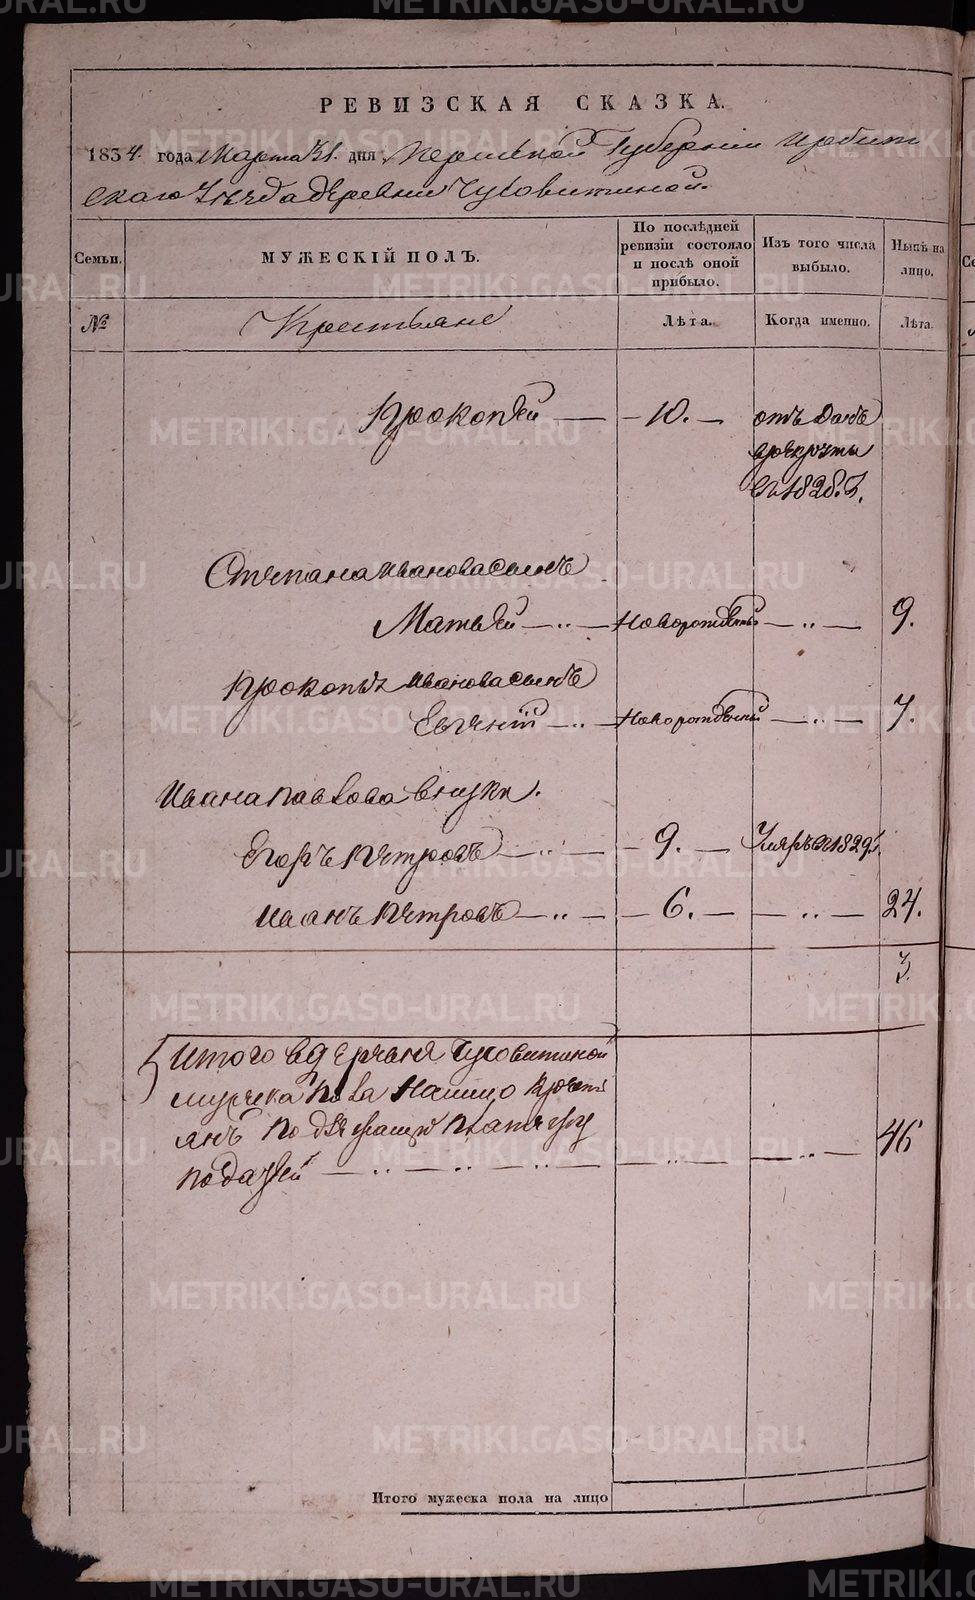 РЕВИЗСКАЯ СКАЗКА.
1834 года Марта 31 дня Пермской Губернии Ирбит
скаго Уезда деревни Чусовитиной.
Семьи.
МУЖЕСКІЙ ПОЛЪ.
По послѣдней ревизіи состояло и послѣ оной прибыло.
Изъ того числа выбыло.
Нынѣ на лицо.
№
Крестьяне
Лѣта.
Когда именно.
Лѣта.
Прокопей — 10. — отъ данъ
врекруты
въ 1828. Г.
Степана Иванова сынъ
Матвей — новорожденный — 9.
Прокопья Иванова сынъ
Евгений — новорожденный — 7.
Ивана Павлова внуки.
Егоръ Петровъ — 9. — Умеръ в 1829.
Иванъ Петровъ — 6. — 24.
3.
Итого в деревня Чусовитиной
мужска пола налицо крестъ
янъ подлежащи платежу
податей — 46
Итого мужеска пола на лицо
METRIKI.GASO-URAL.RU